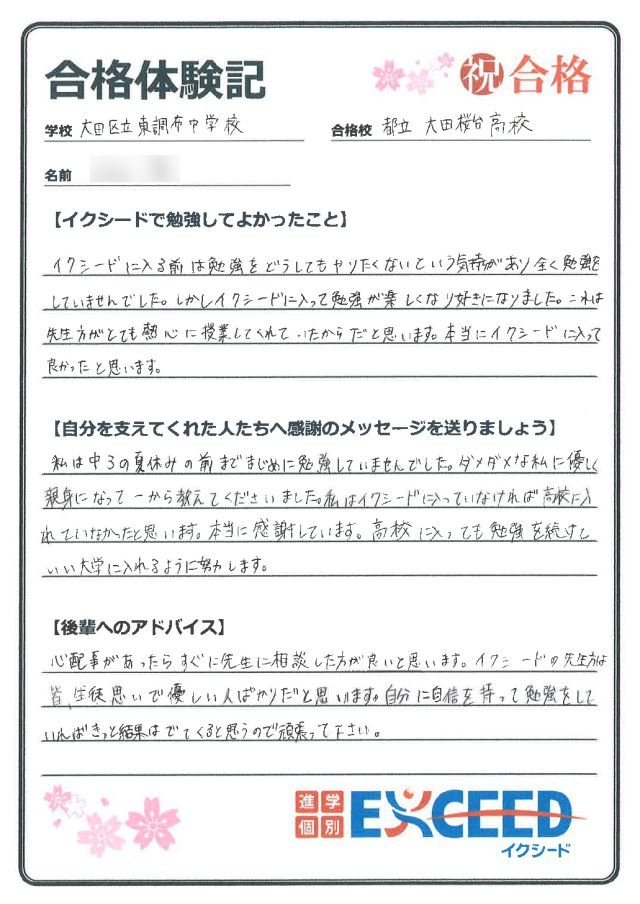 合格体験記
祝 合格
学校 大田区立東調布中学校
合格校 都立 大田桜台高校
名前
【イクシードで勉強してよかったこと】
イクシードに入る前は勉強をどうしてもやりたくないという気持があり全く勉強を
していませんでした。しかしイクシードに入って勉強が楽しくなり好きになりました。これは
先生方がとても熱心に授業してくれていたからだと思います。本当にイクシードに入って
良かったと思います。
【自分を支えてくれた人たちへ感謝のメッセージを送りましょう】
私は中3の夏休みの前までまじめに勉強していませんでした。ダメダメな私に優しく
親身になって一から教えてくださいました。私はイクシードに入っていなければ高校に入
れていなかったと思います。本当に感謝しています。高校に入っても勉強を続けて
いい大学に入れるように努力します。
【後輩へのアドバイス】
心配事があったらすぐに先生に相談した方が良いと思います。イクシードの先生方は
皆、生徒思いで優しい人ばかりだと思います。自分に自信を持って勉強をして
いればきっと結果はでてくると思うので頑張って下さい。
進学
個別
EXCEED
イクシード